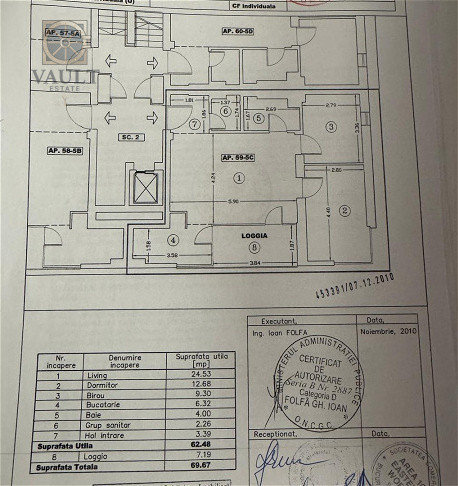 Individuala (U)
CF Individuala
VAULT
ESTATE
AP. 57-5A
AP. 60-5D
AP. 58-5B
AP. 59-5C
SC. 2
1.81
1.86
1.37
1.67
2.69
2.79
3.36
2.80
4.24
5.96
4.40
1.58
3.58
3.84
1.87
1
2
3
4
5
6
7
LOGGIA
8
453391/07.12.2010
Executant,
Data,
Ing. Ioan FOLFA
Noiembrie, 2010
MINISTERUL ADMINISTRATIEI PUBLICE
CERTIFICAT
DE
AUTORIZARE
Seria B Nr. 2887
Categoria D
FOLFĂ GH. IOAN
* O.N.C.G.C. *
Receptionat,
Data,
Nr. incapere Denumire incapere Suprafata utila [mp]
1 Living 24.53
2 Dormitor 12.68
3 Birou 9.30
4 Bucatarie 6.32
5 Baie 4.00
6 Grup sanitar 2.26
7 Hol intrare 3.39
Suprafata Utila 62.48
8 Loggia 7.19
Suprafata Totala 69.67